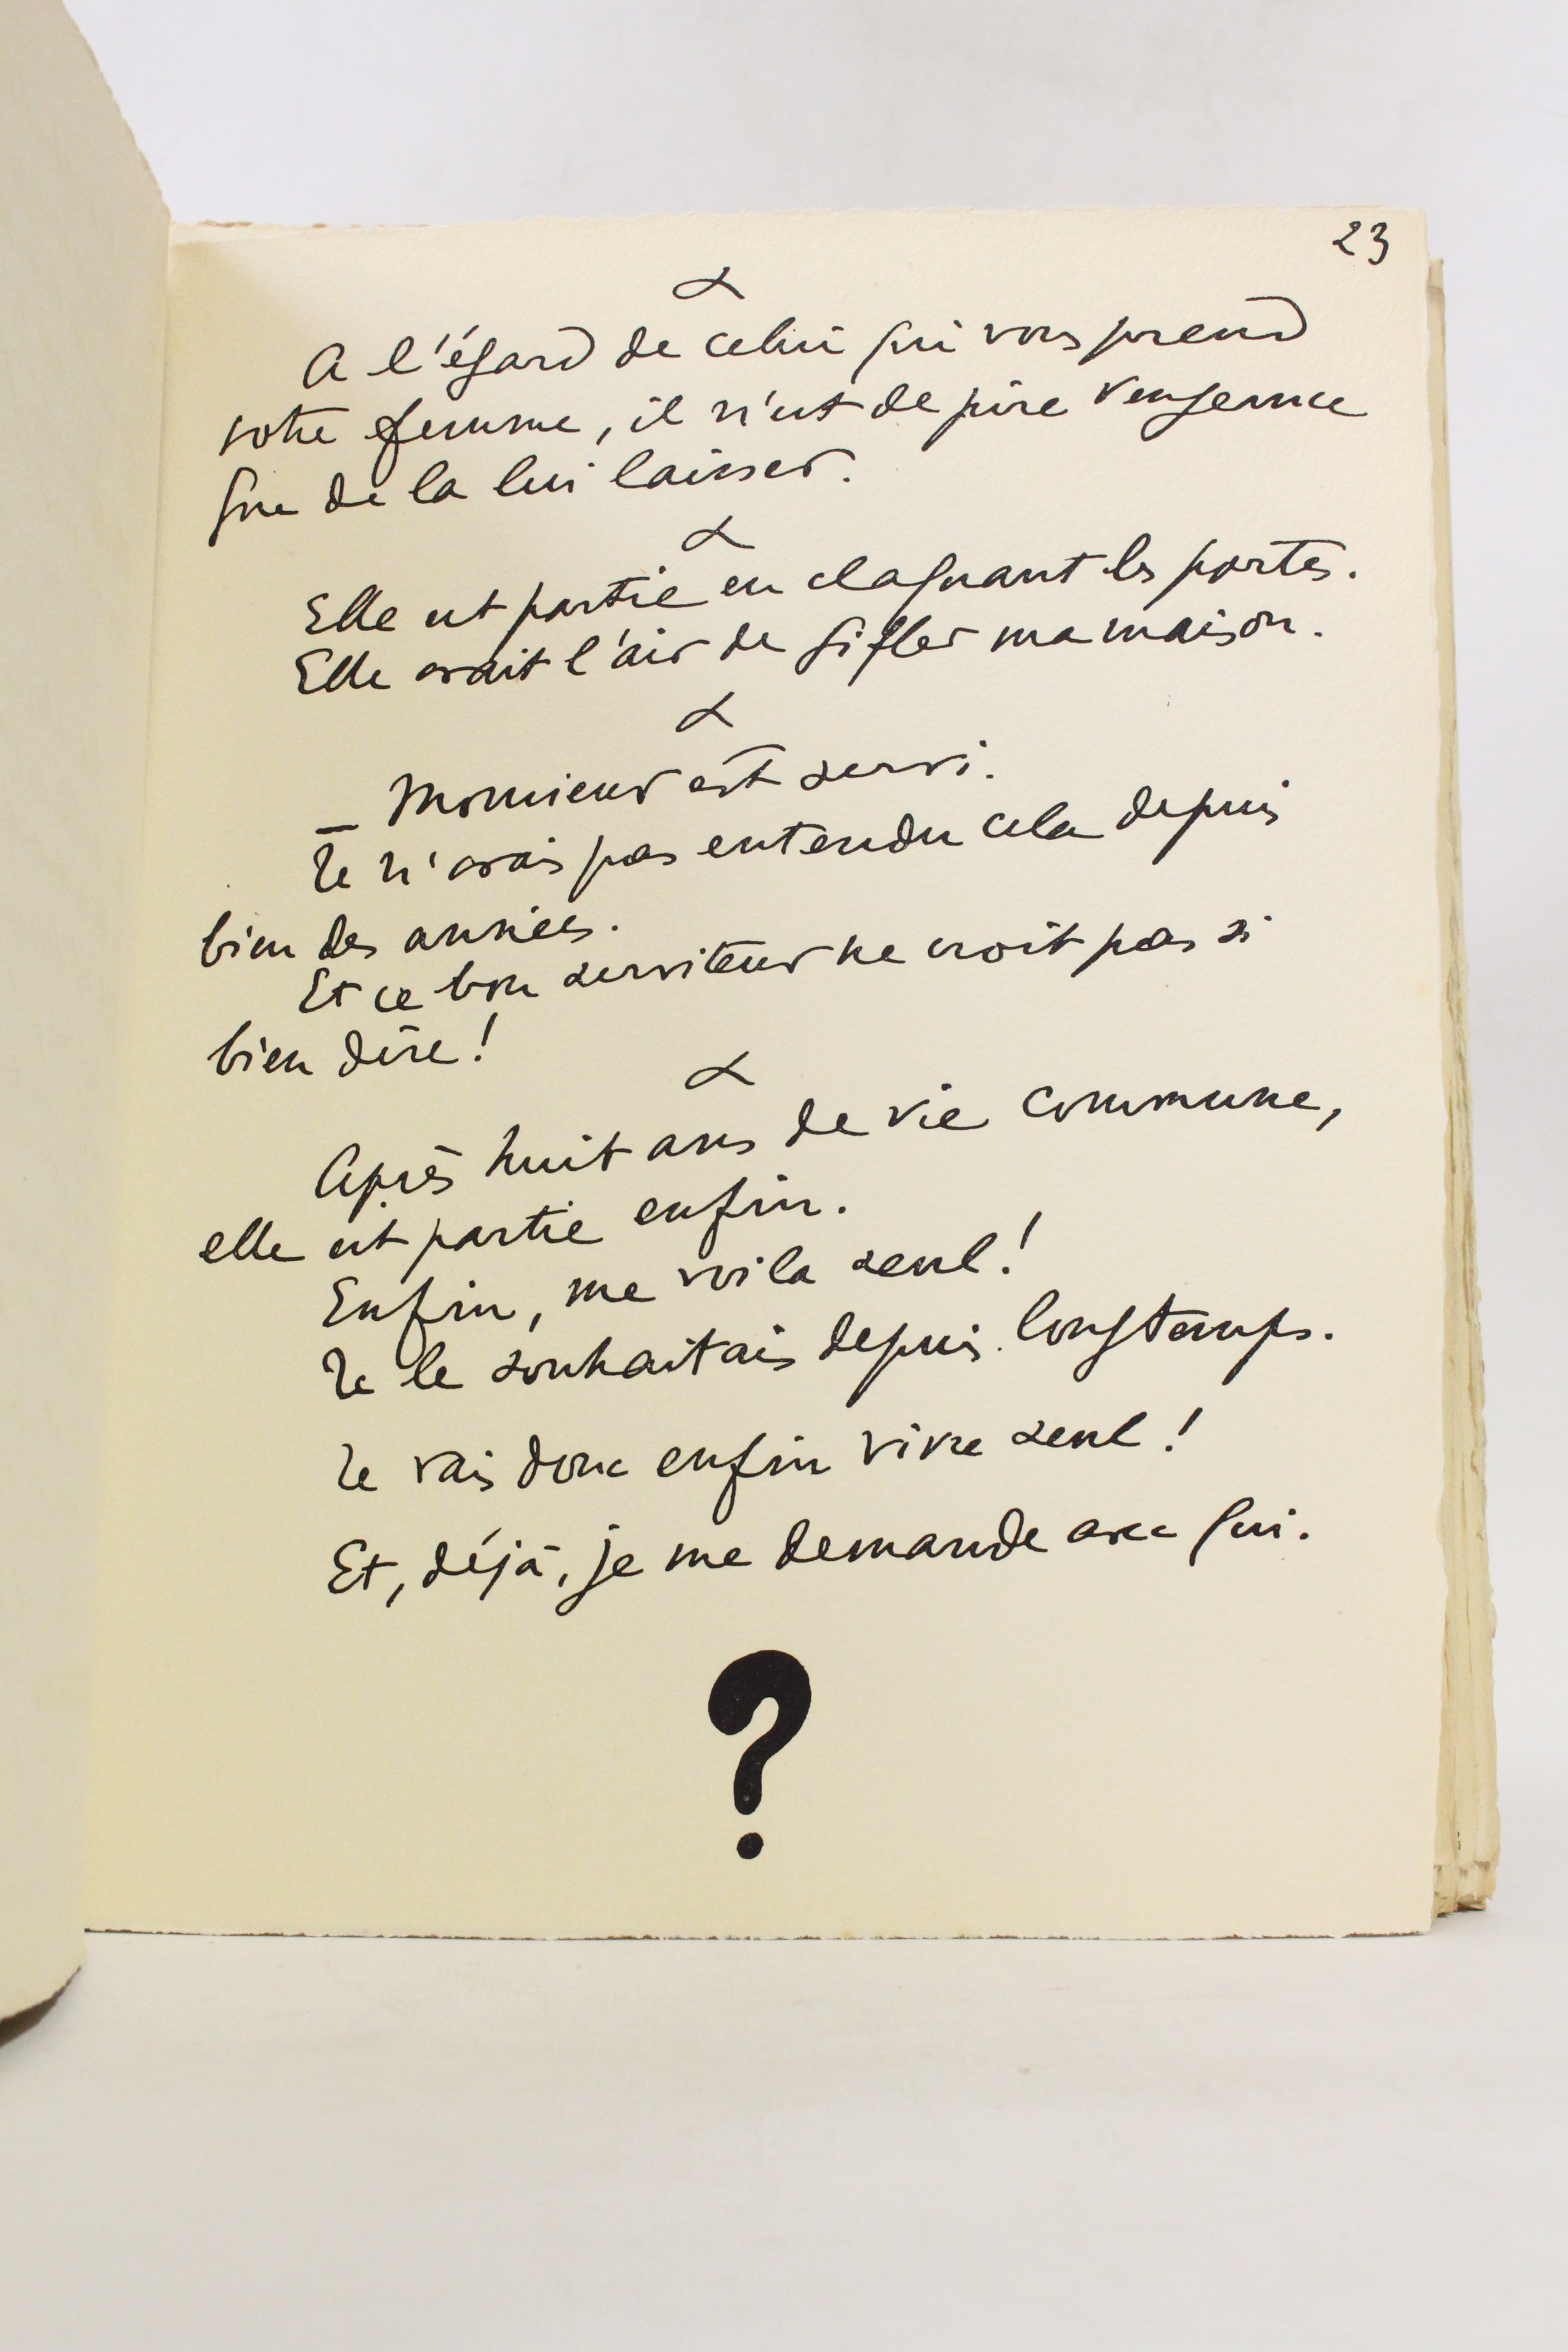 23
A l'égard de celui qui vous prend
votre femme, il n'est de pire vengeance
que de la lui laisser.
Elle est partie en claquant les portes.
Elle avait l'air de gifler ma maison.
_ Monsieur est servi.
Je n'avais pas entendu cela depuis
bien des années.
Et ce bon serviteur ne croit pas si
bien dire!
Après huit ans de vie commune,
elle est partie enfin.
Enfin, me voila seul!
Je le souhaitais depuis longtemps.
Je vais donc enfin vivre seul!
Et, déjà, je me demande avec qui.
?